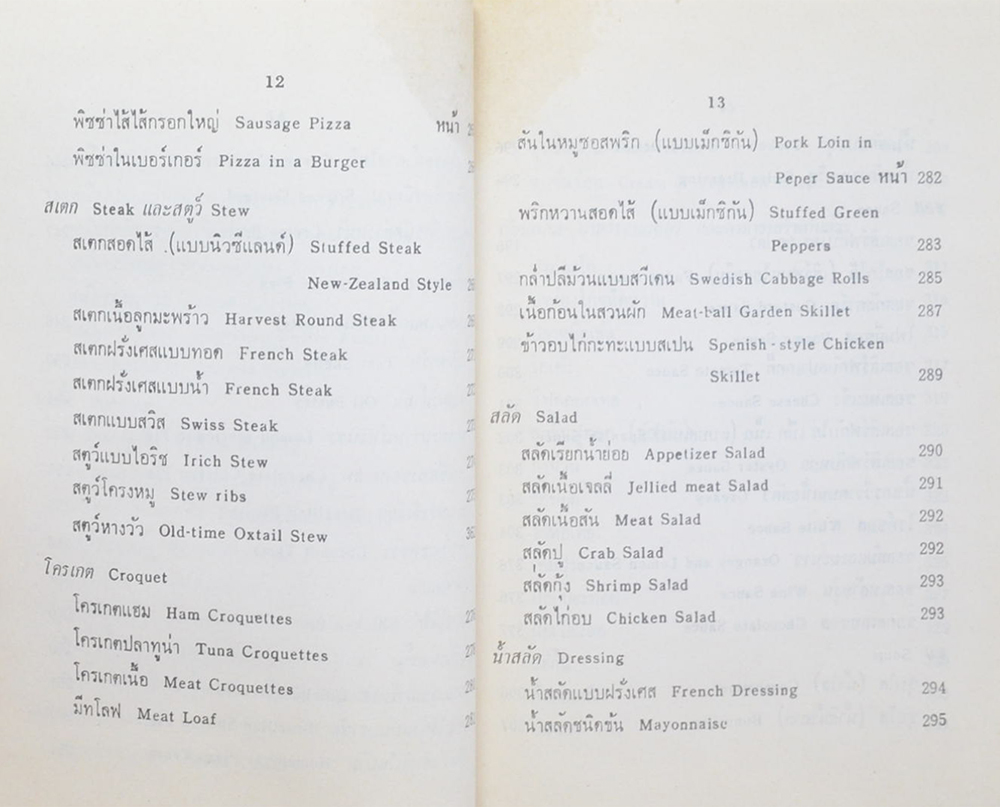 12
พิซซ่าไส้ไส้กรอกใหญ่ Sausage Pizza หน้า
พิซซ่าในเบอร์เกอร์ Pizza in a Burger
สเตก Steak และสตูว์ Stew
สเตกสอดไส้ .(แบบนิวซีแลนด์) Stuffed Steak
New-Zealand Style
สเตกเนื้อลูกมะพร้าว Harvest Round Steak
สเตกฝรั่งเศสแบบทอด French Steak
สเตกฝรั่งเศสแบบน้ำ French Steak
สเตกแบบสวิส Swiss Steak
สตูว์แบบไอริช Irich Stew
สตูว์โครงหมู Stew ribs
สตูว์หางวัว Old-time Oxtail Stew
โครเกต Croquet
โครเกตแฮม Ham Croquettes
โครเกตปลาทูน่า Tuna Croquettes
โครเกตเนื้อ Meat Croquettes
มีทโลฟ Meat Loaf
13
สันในหมูซอสพริก (แบบเม็กซิกัน) Pork Loin in
Peper Sauce หน้า 282
พริกหวานสอดไส้ (แบบเม็กซิกัน) Stuffed Green
Peppers 283
กล่ำปลีม้วนแบบสวีเดน Swedish Cabbage Rolls 285
เนื้อก้อนในสวนผัก Meat-ball Garden Skillet 287
ข้าวอบไก่กะทะแบบสเปน Spenish-style Chicken
Skillet 289
สลัด Salad
สลัดเรียกน้ำย่อย Appetizer Salad 290
สลัดเนื้อเจลลี่ Jellied meat Salad 291
สลัดเนื้อสัน Meat Salad 292
สลัดปู Crab Salad 292
สลัดกุ้ง Shrimp Salad 293
สลัดไก่อบ Chicken Salad 293
น้ำสลัด Dressing
น้ำสลัดแบบฝรั่งเศส French Dressing 294
น้ำสลัดชนิดข้น Mayonnaise 295